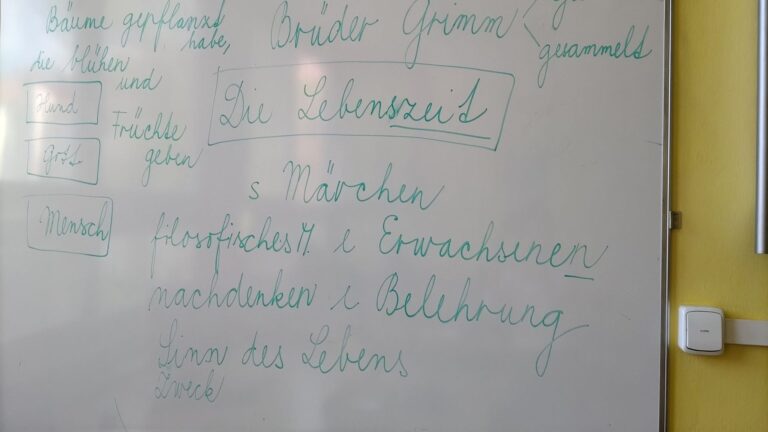 Bäume gepflanzt
habe,
die blühen
und
Früchte
geben
Brüder Grimm
gesammelt
Die Lebenszeit
Hund
Gott
Mensch
s Märchen
filosofisches M. e Erwachsenen
nachdenken e Belehrung
Sinn des Lebens
Zweck